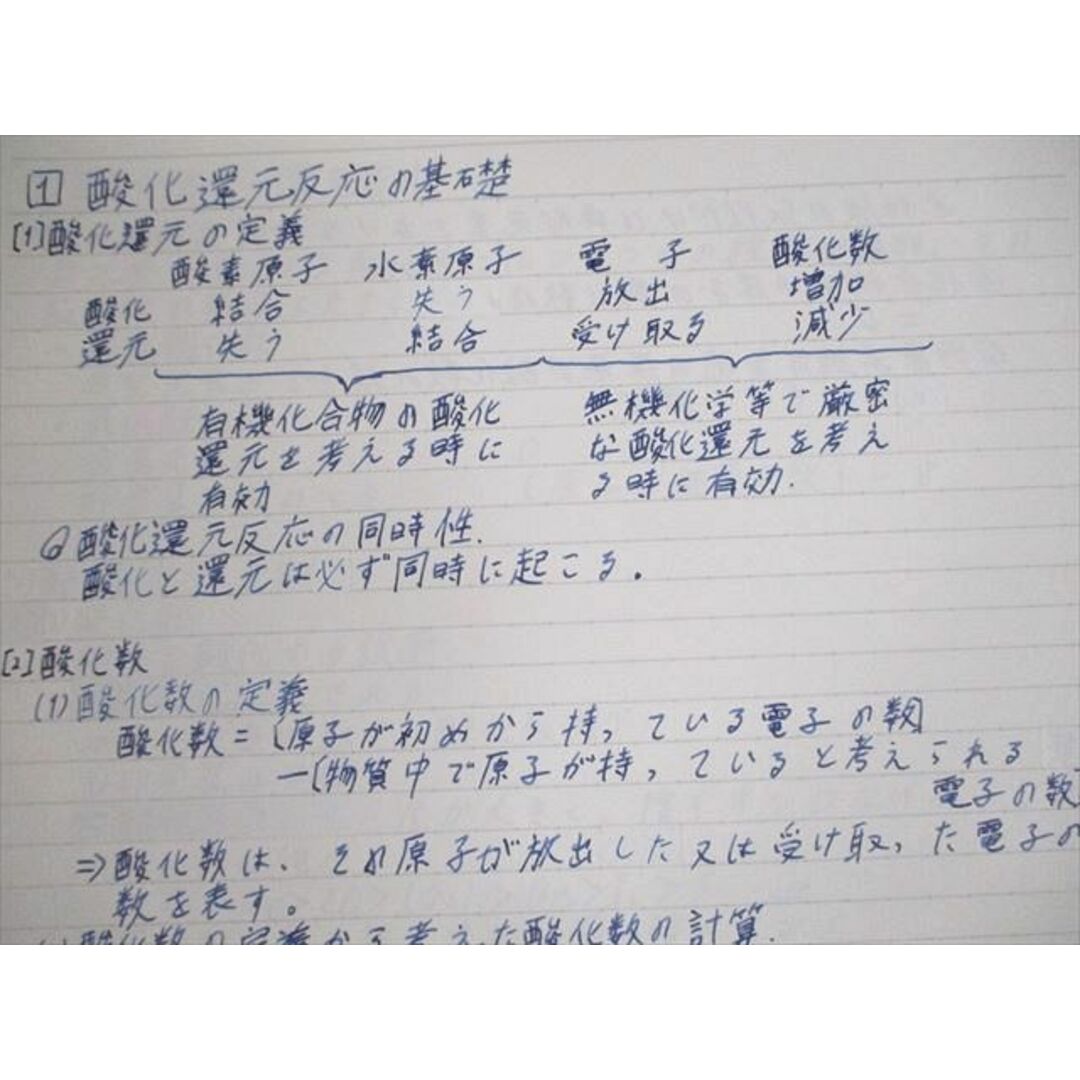 1 酸化還元反応の基礎
[1]酸化還元の定義
酸素原子 水素原子 電子 酸化数
酸化 結合 失う 放出 増加
還元 失う 結合 受け取る 減少
有機化合物の酸化 無機化学等で厳密
還元を考える時に な酸化還元を考え
有効 る時に有効.
◎酸化還元反応の同時性.
酸化と還元は必ず同時に起こる。
[2]酸化数
(1)酸化数の定義
酸化数=[原子が初めから持っている電子の数]
ー[物質中で原子が持っていると考えられる
電子の数]
⇒酸化数は、その原子が放出した又は受け取った電子の
数を表す。
酸化数の定義から考えた酸化数の計算.